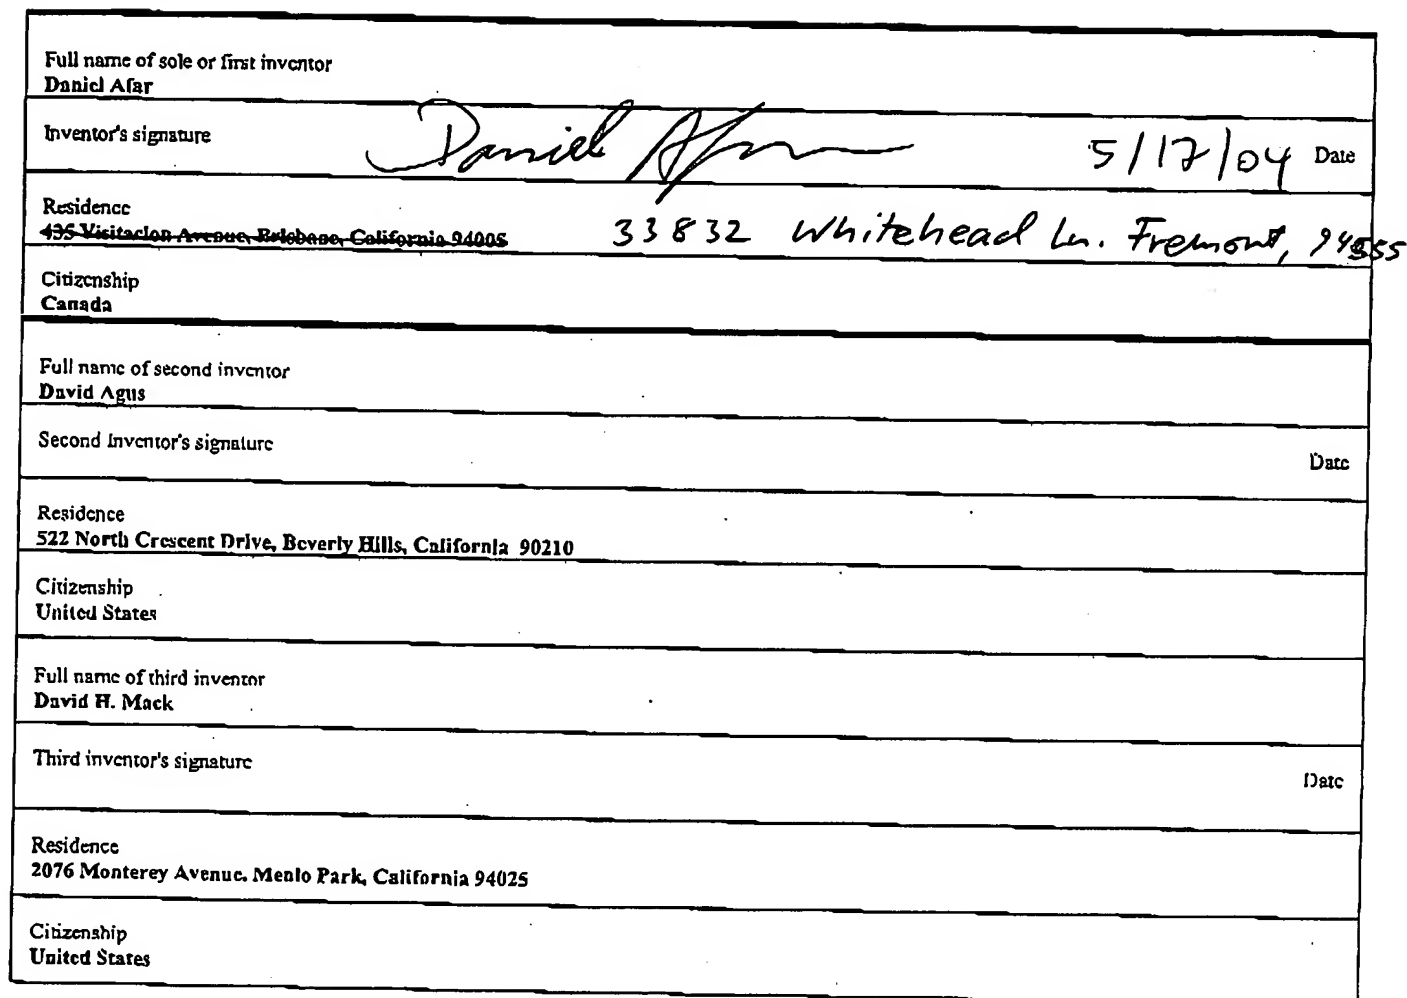 Full name of sole or first inventor
Daniel Afar
Inventor's signature Daniel Afar 5/17/04 Date
Residence
435 Visitacion Avenue, Brisbane, California 94005 33832 Whitehead Ln. Fremont, 94555
Citizenship
Canada
Full name of second inventor
David Agus
Second Inventor's signature Date
Residence
522 North Crescent Drive, Beverly Hills, California 90210
Citizenship
United States
Full name of third inventor
David H. Mack
Third inventor's signature Date
Residence
2076 Monterey Avenue, Menlo Park, California 94025
Citizenship
United States